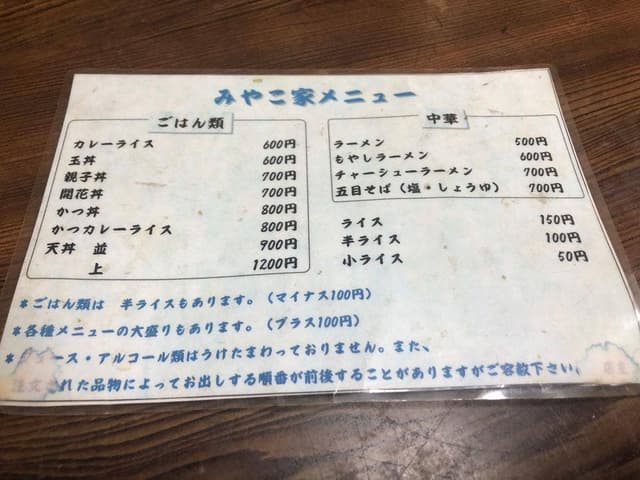 みやこ家メニュー
ごはん類
カレーライス 600円
玉丼 600円
親子丼 700円
開花丼 700円
かつ丼 800円
かつカレーライス 800円
天丼 並 900円
上 1200円
中華
ラーメン 500円
もやしラーメン 600円
チャーシューラーメン 700円
五目そば(塩・しょうゆ) 700円
ライス 150円
半ライス 100円
小ライス 50円
*ごはん類は 半ライスもあります。(マイナス100円)
*各種メニューの大盛りもあります。(プラス100円)
*ース・アルコール類はうけたまわっておりません。また、
注文された品物によってお出しする順番が前後することがありますがご容赦下さい。
店主